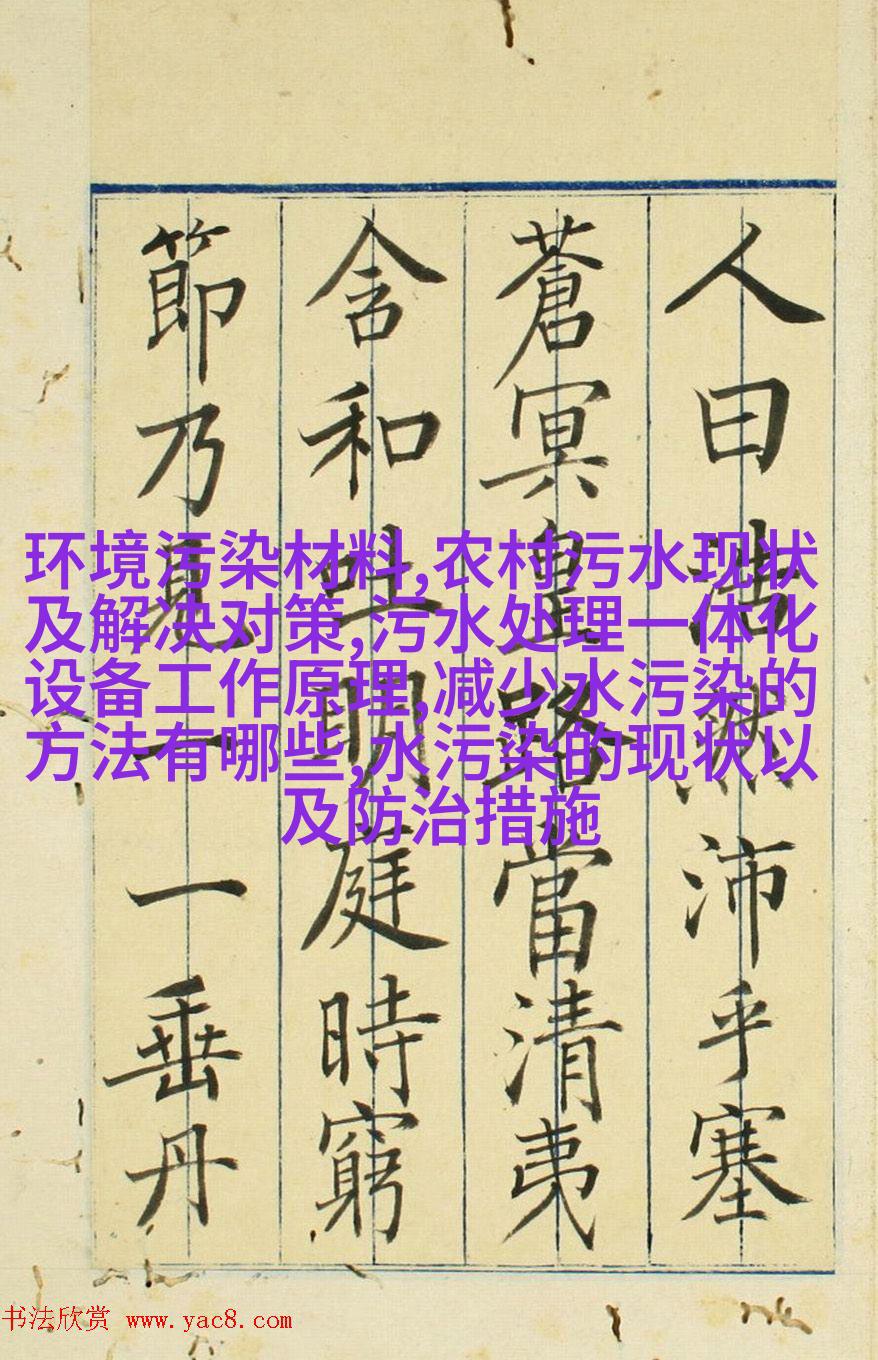 人曰浩然沛乎塞
蒼冥皇路當清夷
含和吐明庭時窮
節乃見一一垂丹
环境污染材料,农村污水现状
及解决对策,污水处理一体化
设备工作原理,减少水污染的
方法有哪些,水污染的现状以
及防治措施
书法欣赏 www.yac8.com